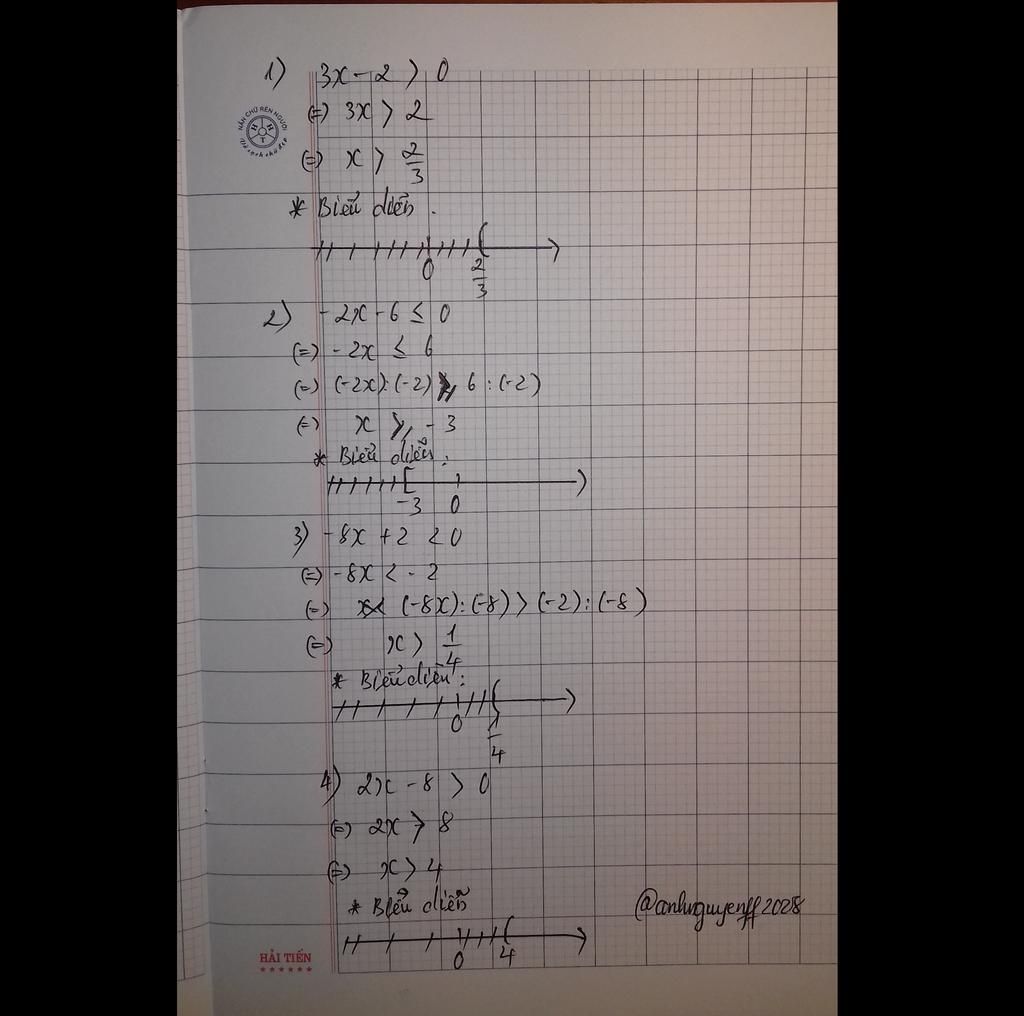 1) 3x - 2 > 0
(=) 3x > 2
(=) x > 2/3
* Biểu diễn.
0 2/3
2) -2x - 6 ≤ 0
(=) -2x ≤ 6
(=) (-2x):(-2) ≥ 6:(-2)
(=) x ≥ -3
* Biểu diễn:
-3 0
3) -8x + 2 < 0
(=) -8x < -2
(=) (-8x):(-8) > (-2):(-8)
(=) x > 1/4
* Biểu diễn:
0 1/4
4) 2x - 8 > 0
(=) 2x > 8
(=) x > 4
* Biểu diễn
0 4
@anhnguyenff2028
NẮN CHỮ RÈN NGƯỜI
H H T
HẢI TIẾN